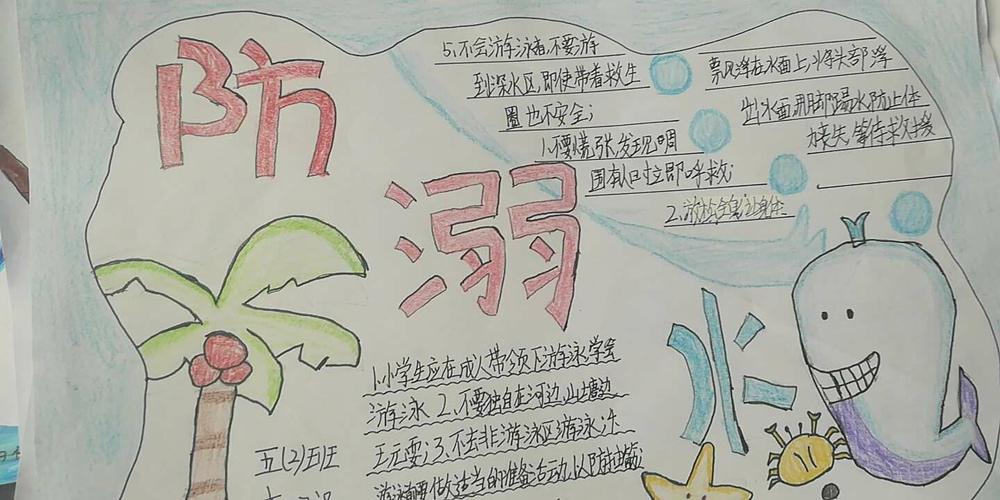 防
溺
水
5、不会游泳者，不要游
到深水区，即使带着救生
圈也不安全；
1、不要慌张，发现周
围有人时立即呼救；
2、放松全身，让身体
票风浮在水面上，将头部浮
出水面，用脚踢水，防止体
力丧失，等待救援
1、小学生应在成人带领下游泳，学会
游泳 2、不要独自在河边、山塘边
玩耍；3、不去非游泳区游泳；4、
游泳前要做适当的准备活动，以防抽筋
五(2)班